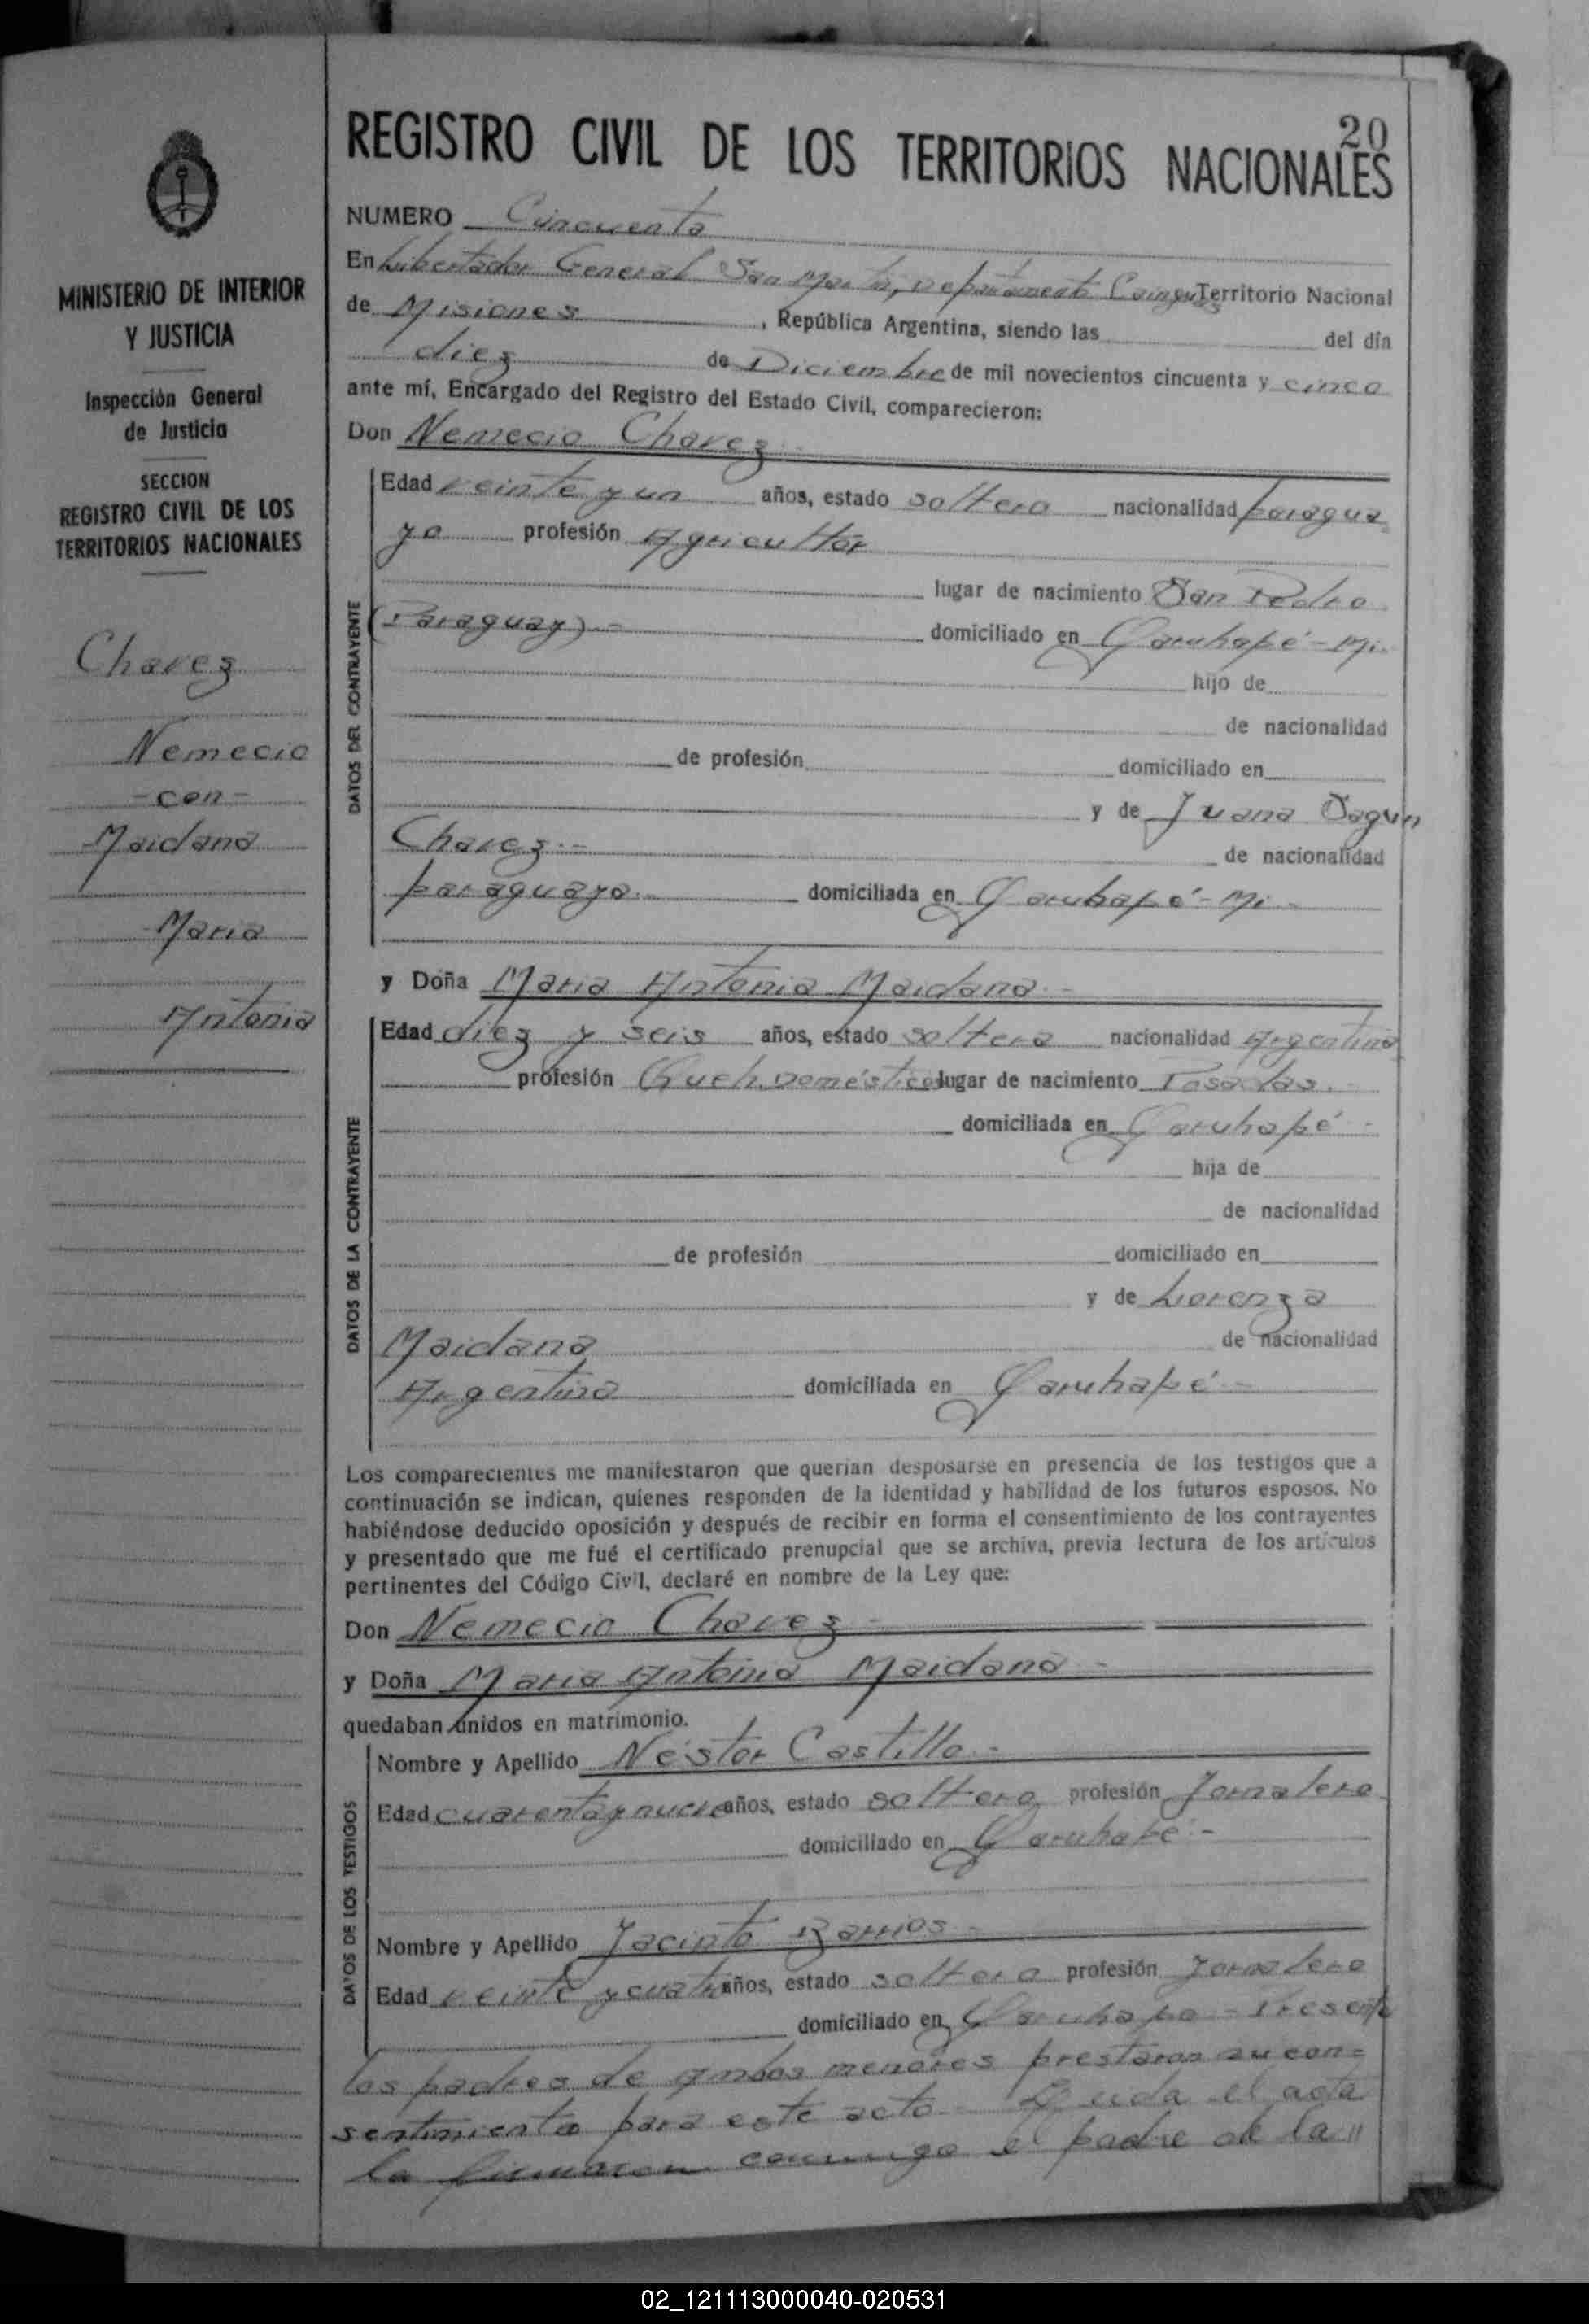 20
REGISTRO CIVIL DE LOS TERRITORIOS NACIONALES
MINISTERIO DE INTERIOR
Y JUSTICIA
Inspección General
de Justicia
SECCION
REGISTRO CIVIL DE LOS
TERRITORIOS NACIONALES
Chavez
Nemecio
-con-
Maidana
Maria
Antonia
NUMERO Cincuenta
En Libertador General San Martin, Departamento Cainguas Territorio Nacional
de Misiones, República Argentina, siendo las del día
diez de Diciembre de mil novecientos cincuenta y cinco
ante mí, Encargado del Registro del Estado Civil, comparecieron:
Don Nemecio Chavez
DATOS DEL CONTRAYENTE
Edad veinte y un años, estado soltero nacionalidad paragua
yo profesión Agricultor
lugar de nacimiento San Pedro
(Paraguay).- domiciliado en Garuhapé-Mi.
hijo de
de nacionalidad
de profesión domiciliado en
y de Juana Sagun
Chavez.- de nacionalidad
paraguaya.- domiciliada en Garuhapé-Mi-
y Doña Maria Antonia Maidana-
DATOS DE LA CONTRAYENTE
Edad diez y seis años, estado soltera nacionalidad Argentina
profesión Queh. Domésticos lugar de nacimiento Posadas.
domiciliada en Garuhapé-
hija de
de nacionalidad
de profesión domiciliado en
y de Lorenza
Maidana de nacionalidad
Argentina domiciliada en Garuhapé-
Los comparecientes me manifestaron que querían desposarse en presencia de los testigos que a
continuación se indican, quienes responden de la identidad y habilidad de los futuros esposos. No
habiéndose deducido oposición y después de recibir en forma el consentimiento de los contrayentes
y presentado que me fué el certificado prenupcial que se archiva, previa lectura de los artículos
pertinentes del Código Civil, declaré en nombre de la Ley que:
Don Nemecio Chavez-
y Doña Maria Antonia Maidana-
quedaban unidos en matrimonio.
DATOS DE LOS TESTIGOS
Nombre y Apellido Néstor Castillo.-
Edad cuarenta y nueve años, estado soltero profesión Jornalero
domiciliado en Garuhapé.-
Nombre y Apellido Jacinto Barrios-
Edad veinte y cuatro años, estado soltero profesión Jornalero
domiciliado en Garuhape-Presente
los padres de ambos menores prestaron su con=
sentimiento para este acto.- Leida el acta
la firmaron conmigo el padre de la "
02_121113000040-020531